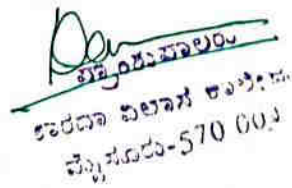 ಪ್ರಾಂಶುಪಾಲರು
ಶಾರದಾ ವಿಲಾಸ ಕಾಲೇಜು
ಮೈಸೂರು-570 004